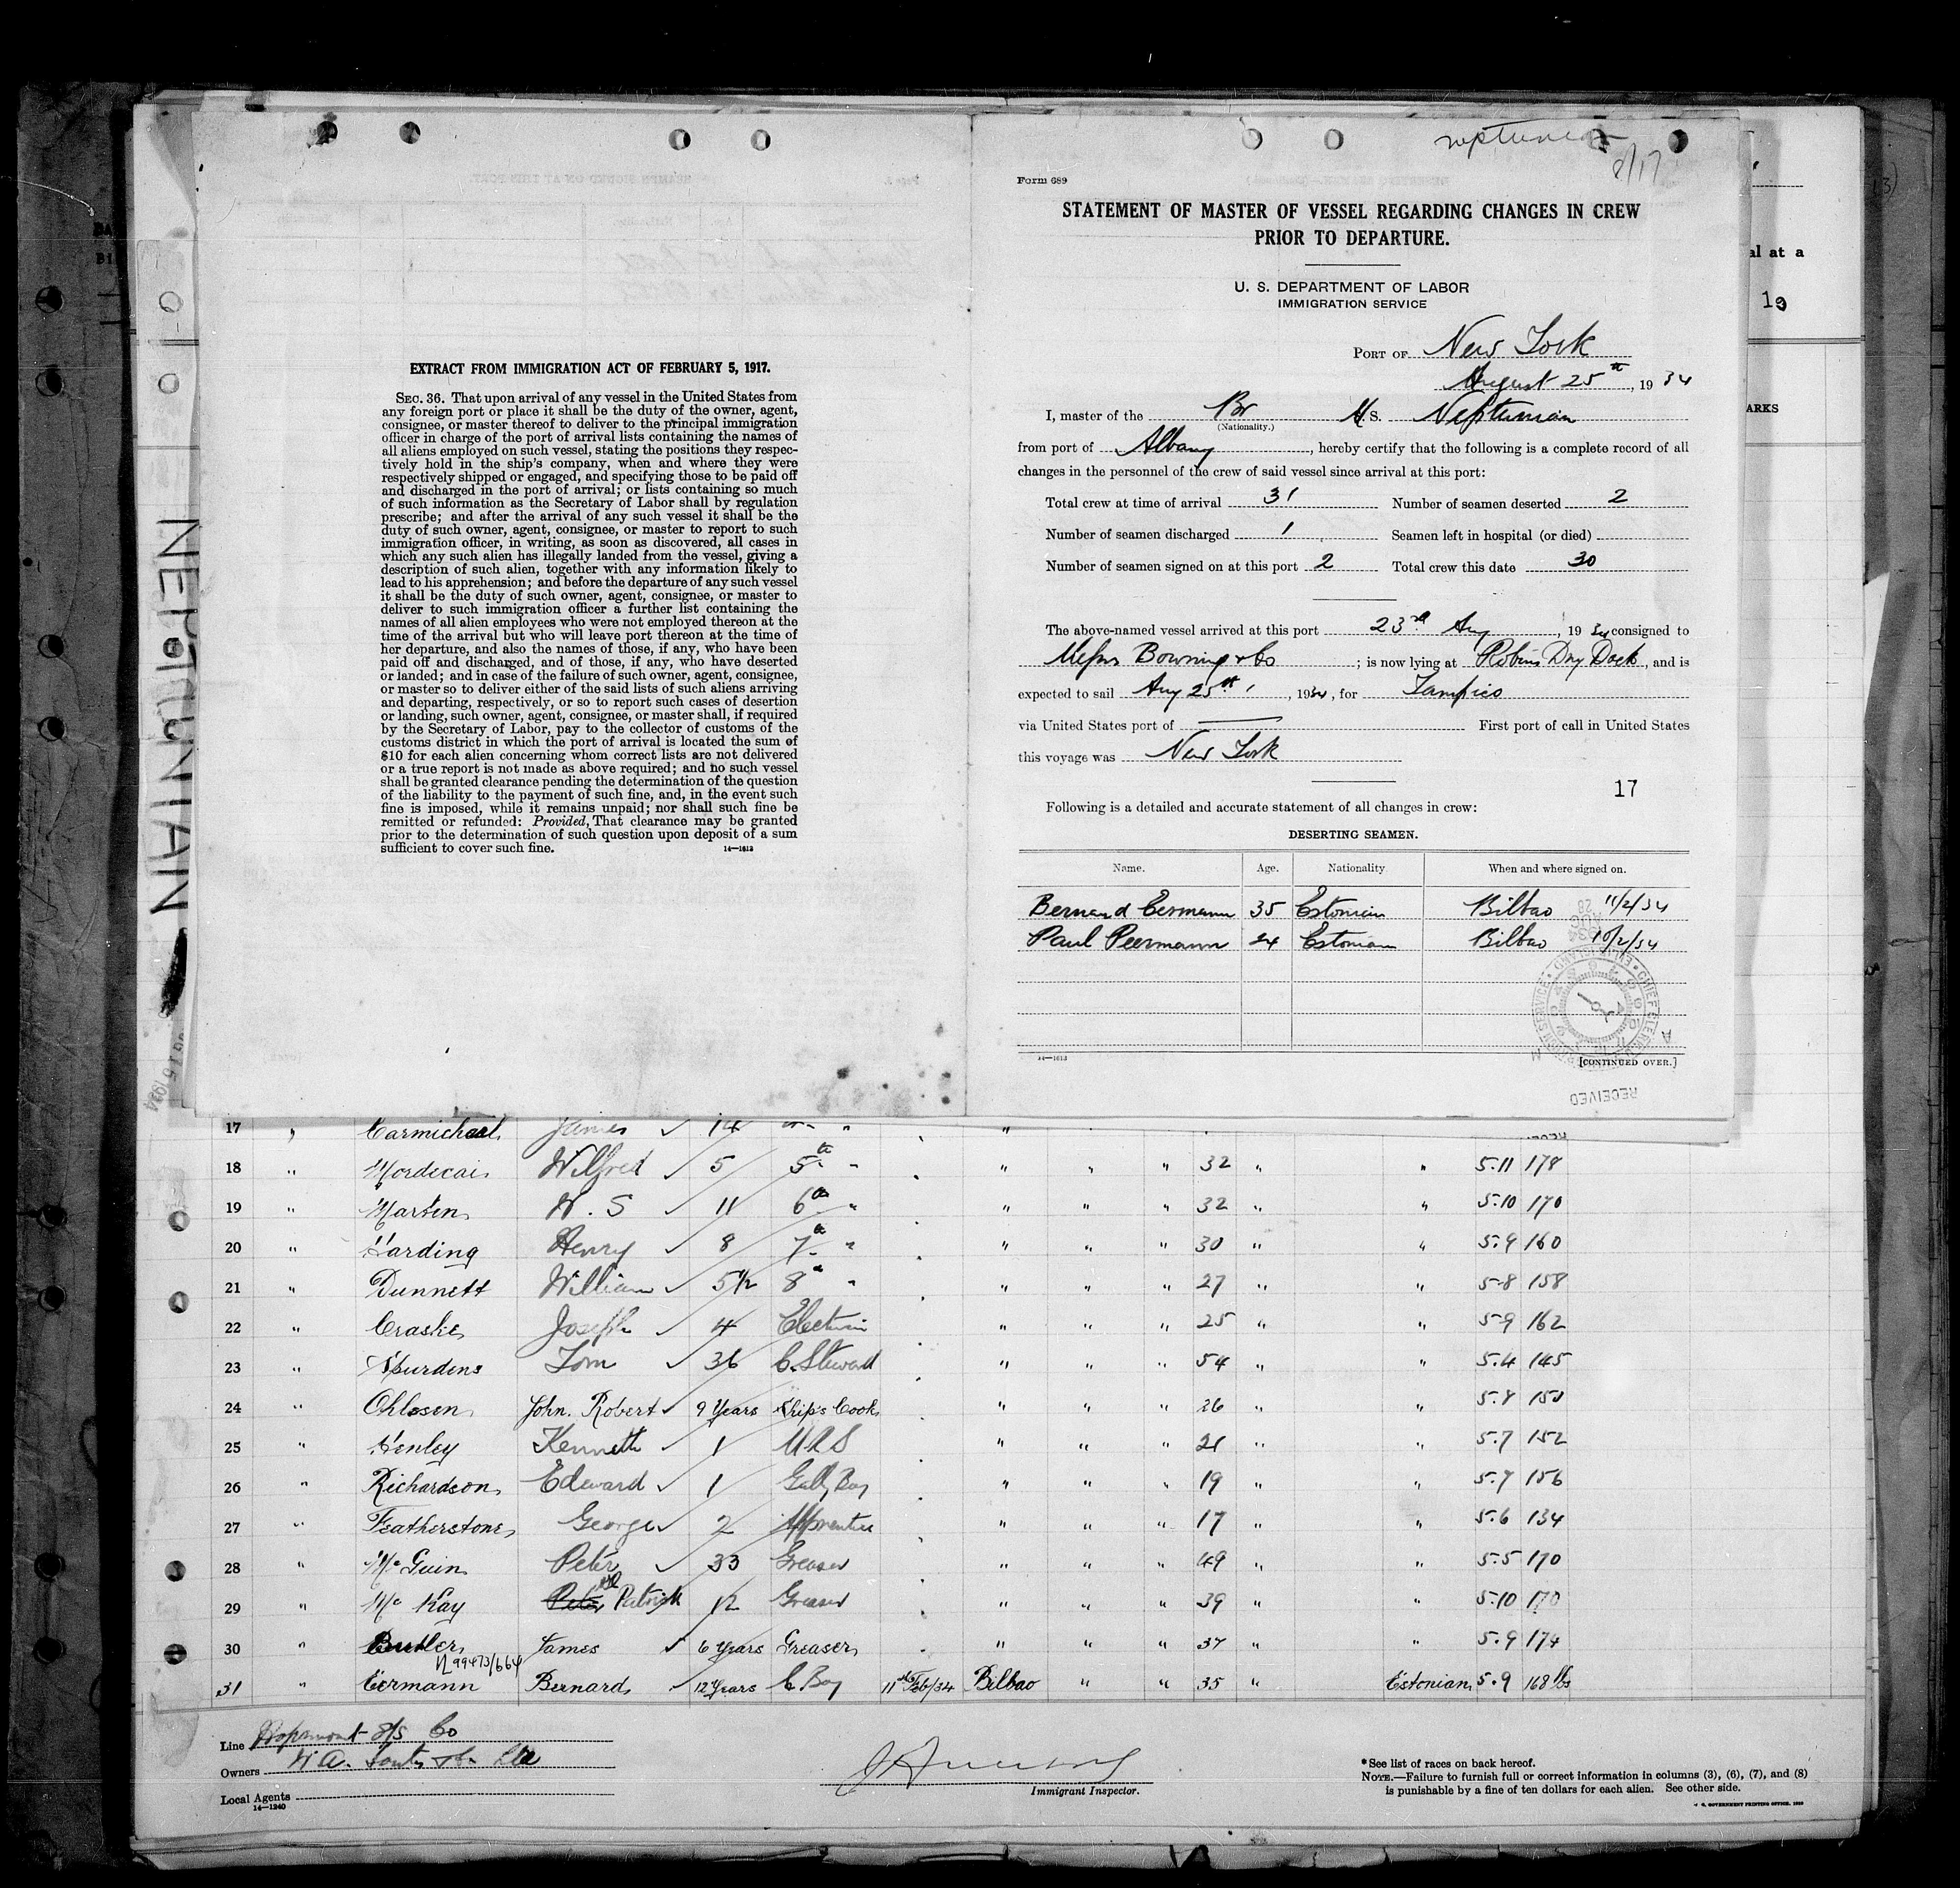 Neptunian
8/17
Form 689
STATEMENT OF MASTER OF VESSEL REGARDING CHANGES IN CREW
PRIOR TO DEPARTURE.
U. S. DEPARTMENT OF LABOR
IMMIGRATION SERVICE
PORT OF New York
August 25th, 1934
I, master of the Br M S. Neptunian
(Nationality.)
from port of Albany, hereby certify that the following is a complete record of all
changes in the personnel of the crew of said vessel since arrival at this port:
Total crew at time of arrival 31 Number of seamen deserted 2
Number of seamen discharged 1 Seamen left in hospital (or died)
Number of seamen signed on at this port 2 Total crew this date 30
The above-named vessel arrived at this port 23rd Aug, 1934 consigned to
Messrs Bowring & Co; is now lying at Robins Dry Dock, and is
expected to sail Aug 25th, 1934, for Tampico
via United States port of First port of call in United States
this voyage was New York
17
Following is a detailed and accurate statement of all changes in crew:
DESERTING SEAMEN.
Name. Age. Nationality When and where signed on.
Bernard Eermann 35 Estonian Bilbao 11/2/34
Paul Peermann 24 Estonian Bilbao 10/2/34
14—1613 [CONTINUED OVER.]
RECEIVED
EXTRACT FROM IMMIGRATION ACT OF FEBRUARY 5, 1917.
SEC. 36. That upon arrival of any vessel in the United States from
any foreign port or place it shall be the duty of the owner, agent,
consignee, or master thereof to deliver to the principal immigration
officer in charge of the port of arrival lists containing the names of
all aliens employed on such vessel, stating the positions they respec-
tively hold in the ship's company, when and where they were
respectively shipped or engaged, and specifying those to be paid off
and discharged in the port of arrival; or lists containing so much
of such information as the Secretary of Labor shall by regulation
prescribe; and after the arrival of any such vessel it shall be the
duty of such owner, agent, consignee, or master to report to such
immigration officer, in writing, as soon as discovered, all cases in
which any such alien has illegally landed from the vessel, giving a
description of such alien, together with any information likely to
lead to his apprehension; and before the departure of any such vessel
it shall be the duty of such owner, agent, consignee, or master to
deliver to such immigration officer a further list containing the
names of all alien employees who were not employed thereon at the
time of the arrival but who will leave port thereon at the time of
her departure, and also the names of those, if any, who have been
paid off and discharged, and of those, if any, who have deserted
or landed; and in case of the failure of such owner, agent, consignee,
or master so to deliver either of the said lists of such aliens arriving
and departing, respectively, or so to report such cases of desertion
or landing, such owner, agent, consignee, or master shall, if required
by the Secretary of Labor, pay to the collector of customs of the
customs district in which the port of arrival is located the sum of
$10 for each alien concerning whom correct lists are not delivered
or a true report is not made as above required; and no such vessel
shall be granted clearance pending the determination of the question
of the liability to the payment of such fine, and, in the event such
fine is imposed, while it remains unpaid; nor shall such fine be
remitted or refunded: Provided, That clearance may be granted
prior to the determination of such question upon deposit of a sum
sufficient to cover such fine. 14—1613
NEPTUNIAN
al at a
ARKS
17 " Carmichael, James 14 " "
18 " Mordecai, Wilfred 5 5th " " " " 32 " " 5.11 178
19 " Marten, W. S 11 6th " " " " 32 " " 5.10 170
20 " Harding Henry 8 7th " " " " 30 " " 5.9 160
21 " Dunnett William 5½ 8th " " " " 27 " " 5-8 158
22 " Craske, Joseph 4 Electrician " " " 25 " " 5-9 162
23 " Spurdens Tom 36 C. Steward " " " 54 " " 5.4 145
24 " Ohlssen, John. Robert 9 Years Ship's Cook " " " 26 " " 5.8 150
25 " Henley Kenneth 1 MRS " " " 21 " " 5.7 152
26 " Richardson, Edward 1 Gally Boy " " " 19 " " 5.7 156
27 " Featherstone, George 2 Apprentice " " " 17 " " 5.6 134
28 " Mc Guin, Peter 33 Greaser " " " 49 " " 5.5 170
29 " Mc Kay Peter Patrick 12 Greaser " " " 39 " " 5.10 170
30 " Butler, James 6 Years Greaser, " " " 37 " " 5.9 174
99473/664
31 " Eermann Bernard, 12 Years C. Boy 11th Feb/34 Bilbao " " 35 " Estonian, 5.9 168 lbs
Line Ropemont S/S Co
Owners
Local Agents
14—1240
Immigrant Inspector.
*See list of races on back hereof.
NOTE.—Failure to furnish full or correct information in columns (3), (6), (7), and (8)
is punishable by a fine of ten dollars for each alien. See other side.
U. S. GOVERNMENT PRINTING OFFICE.